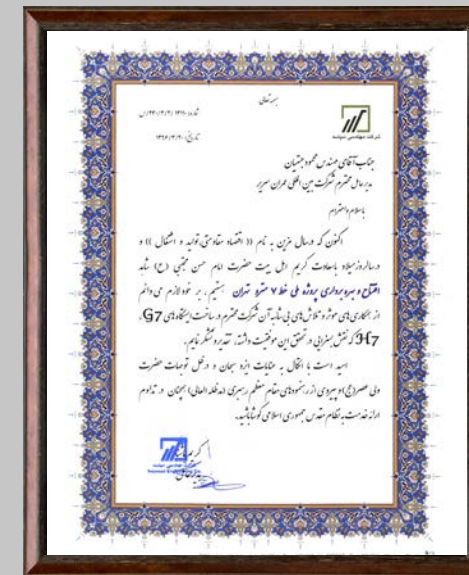 بسمه تعالی
شرکت مهندسی سپاسد
تاریخ: ۱۳۹۶/۳/۲۰
جناب آقای مهندس محمود جنتیان
مدیرعامل محترم شرکت بین المللی عمران سریر
باسلام واحترام
اکنون که درسال مزین به نام (( اقتصاد مقاومتی،تولید و اشتغال )) و
درسالروز میلاد باسعادت کریم اهل بیت حضرت امام حسن مجتبی (ع) شاهد
افتتاح و بهره برداری پروژه ملی خط ۷ مترو تهران هستیم ، بر خود لازم می دانم
از همکاری های موثر و تلاش های بی شائبه آن شرکت محترم درساخت ایستگاه های G7,
H7 که نقش بسزایی در تحقق این موفقیت داشته، تقدیر و تشکر نمایم.
امید است با اتکال به عنایات ایزد سبحان و درظل توجهات حضرت
ولی عصر(عج) و پیروی از رهنمودهای مقام معظم رهبری (مدظله العالی) همچنان در تداوم
ارائه خدمت به نظام مقدس جمهوری اسلامی کوشا باشید.